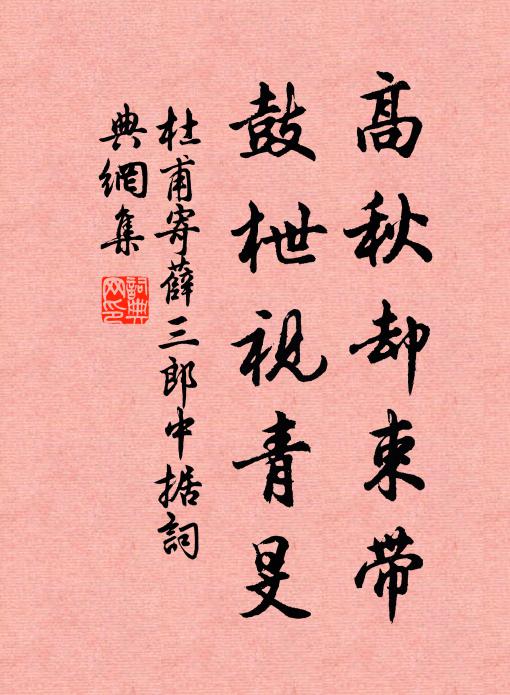 高秋却束带
鼓枻視青旻
杜甫寄薛三郎中据詞
典網集
詞典
网印